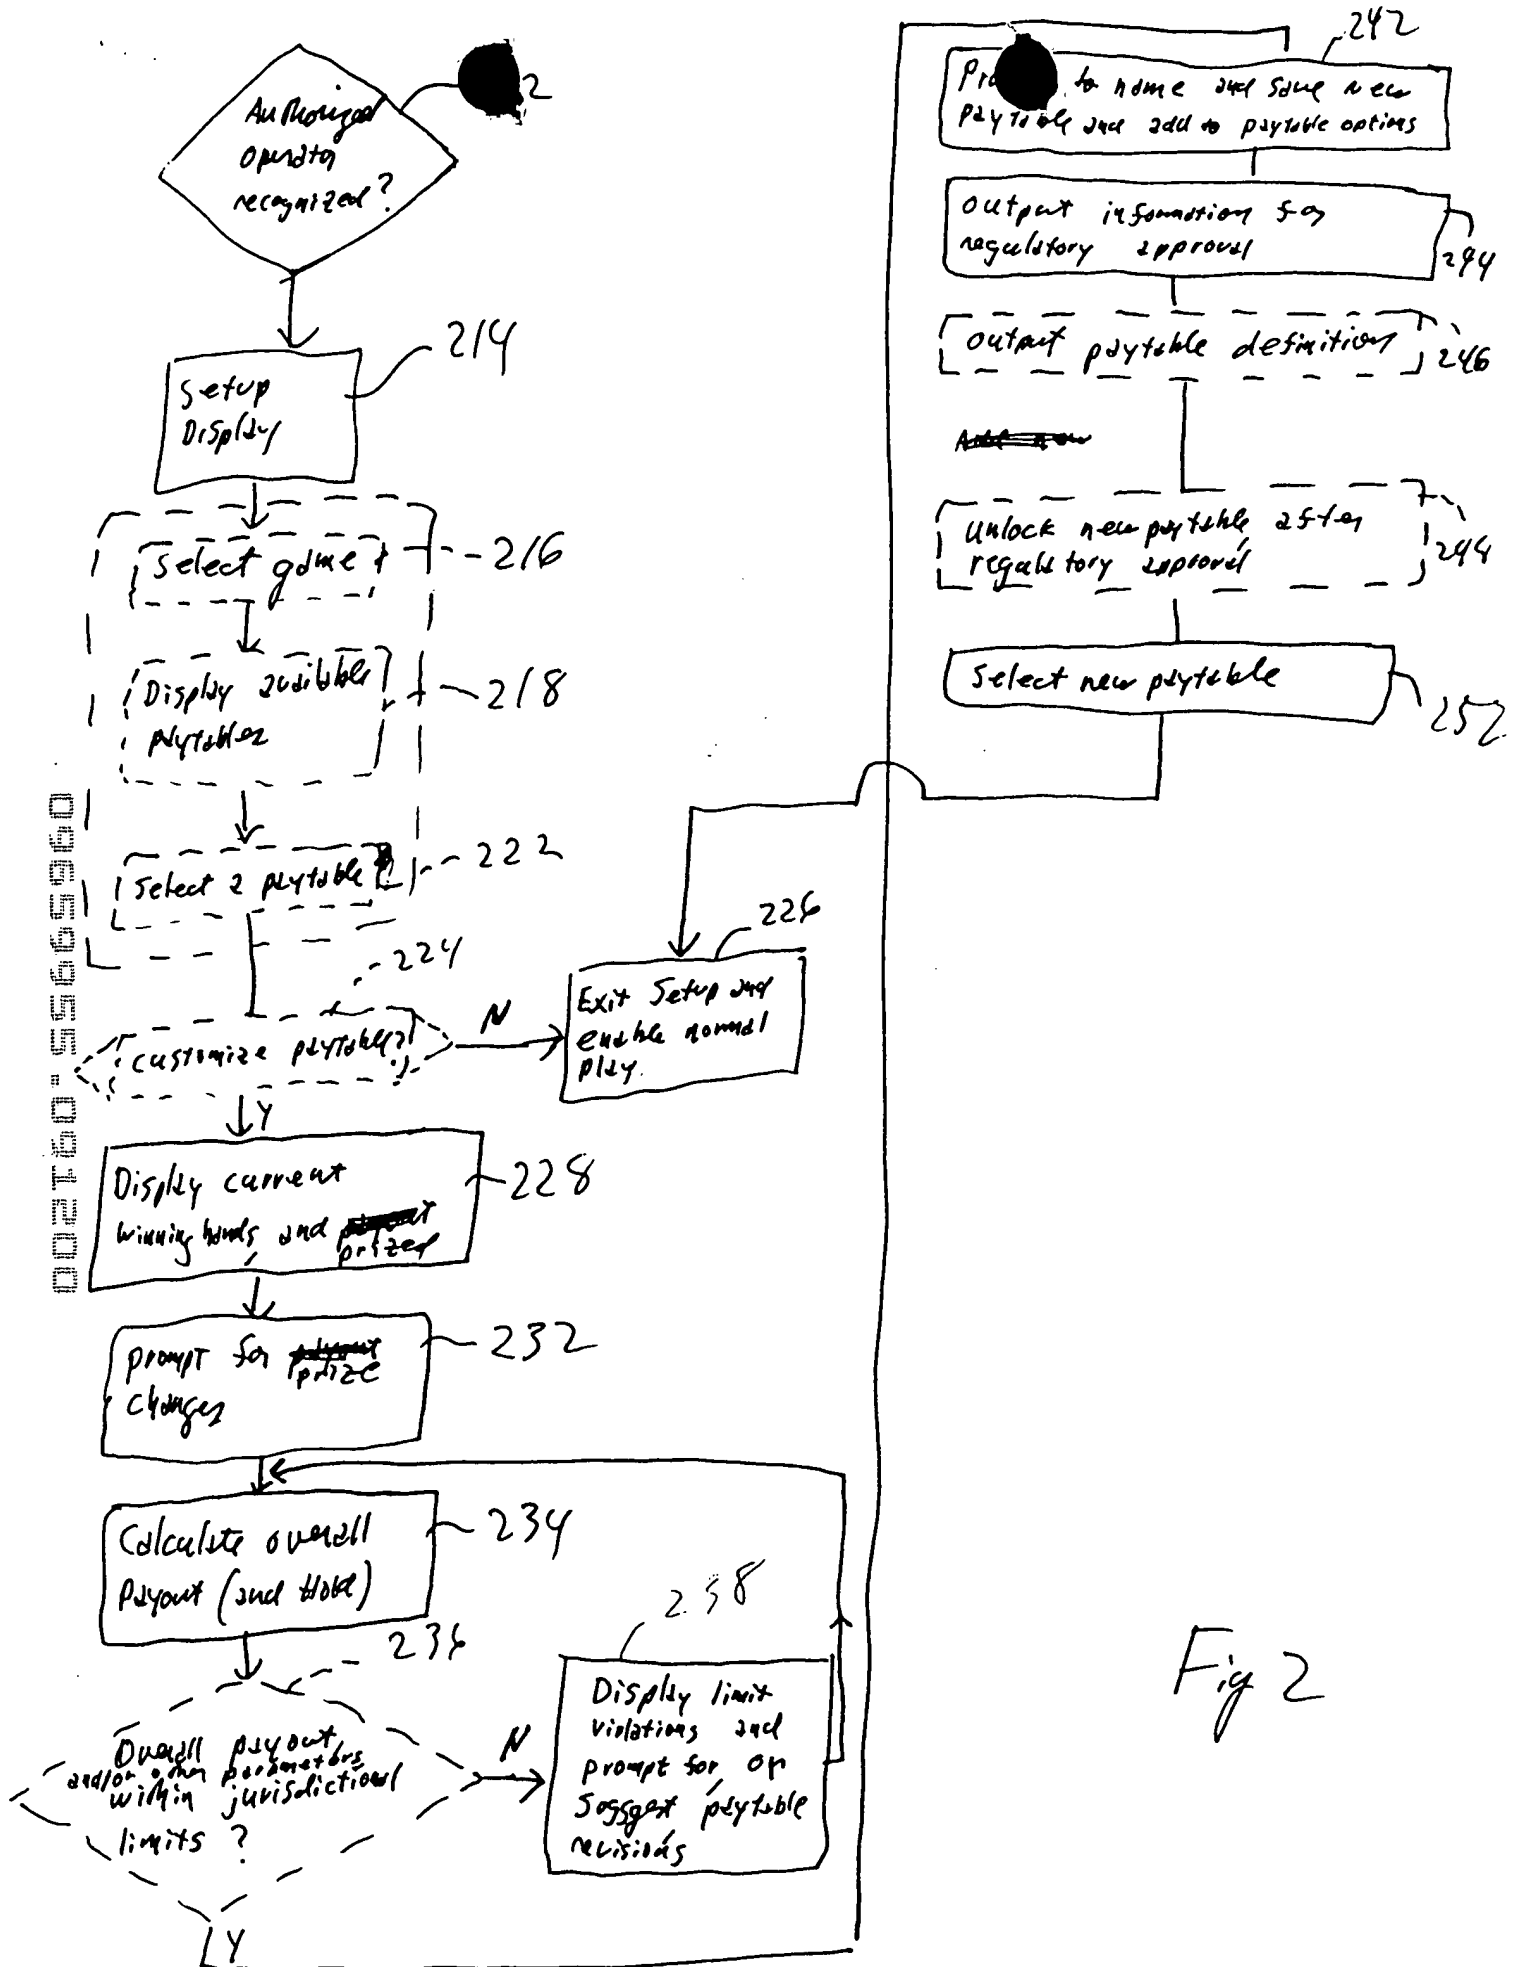 Authorized
operator
recognized?
2
214
Setup
Display
Select game
216
Display available
paytables
218
Select a paytable
222
224
Customize paytable?
N
Y
226
Exit Setup and
enable normal
play.
Display current
winning hands, and
prized
228
prompt for
prize
changes
232
Calculate overall
Payout (and Hold)
234
236
Overall payout
and/or other parameters
within jurisdictional
limits ?
N
Y
238
Display limit
violations and
prompt for or
Soggest paytable
revisions
242
to name and save new
paytable and add to paytable options
output information for
regulatory approval
244
output paytable definition
246
unlock new paytable after
regulatory approval
248
Select new paytable
252
Fig 2
09659955.091200